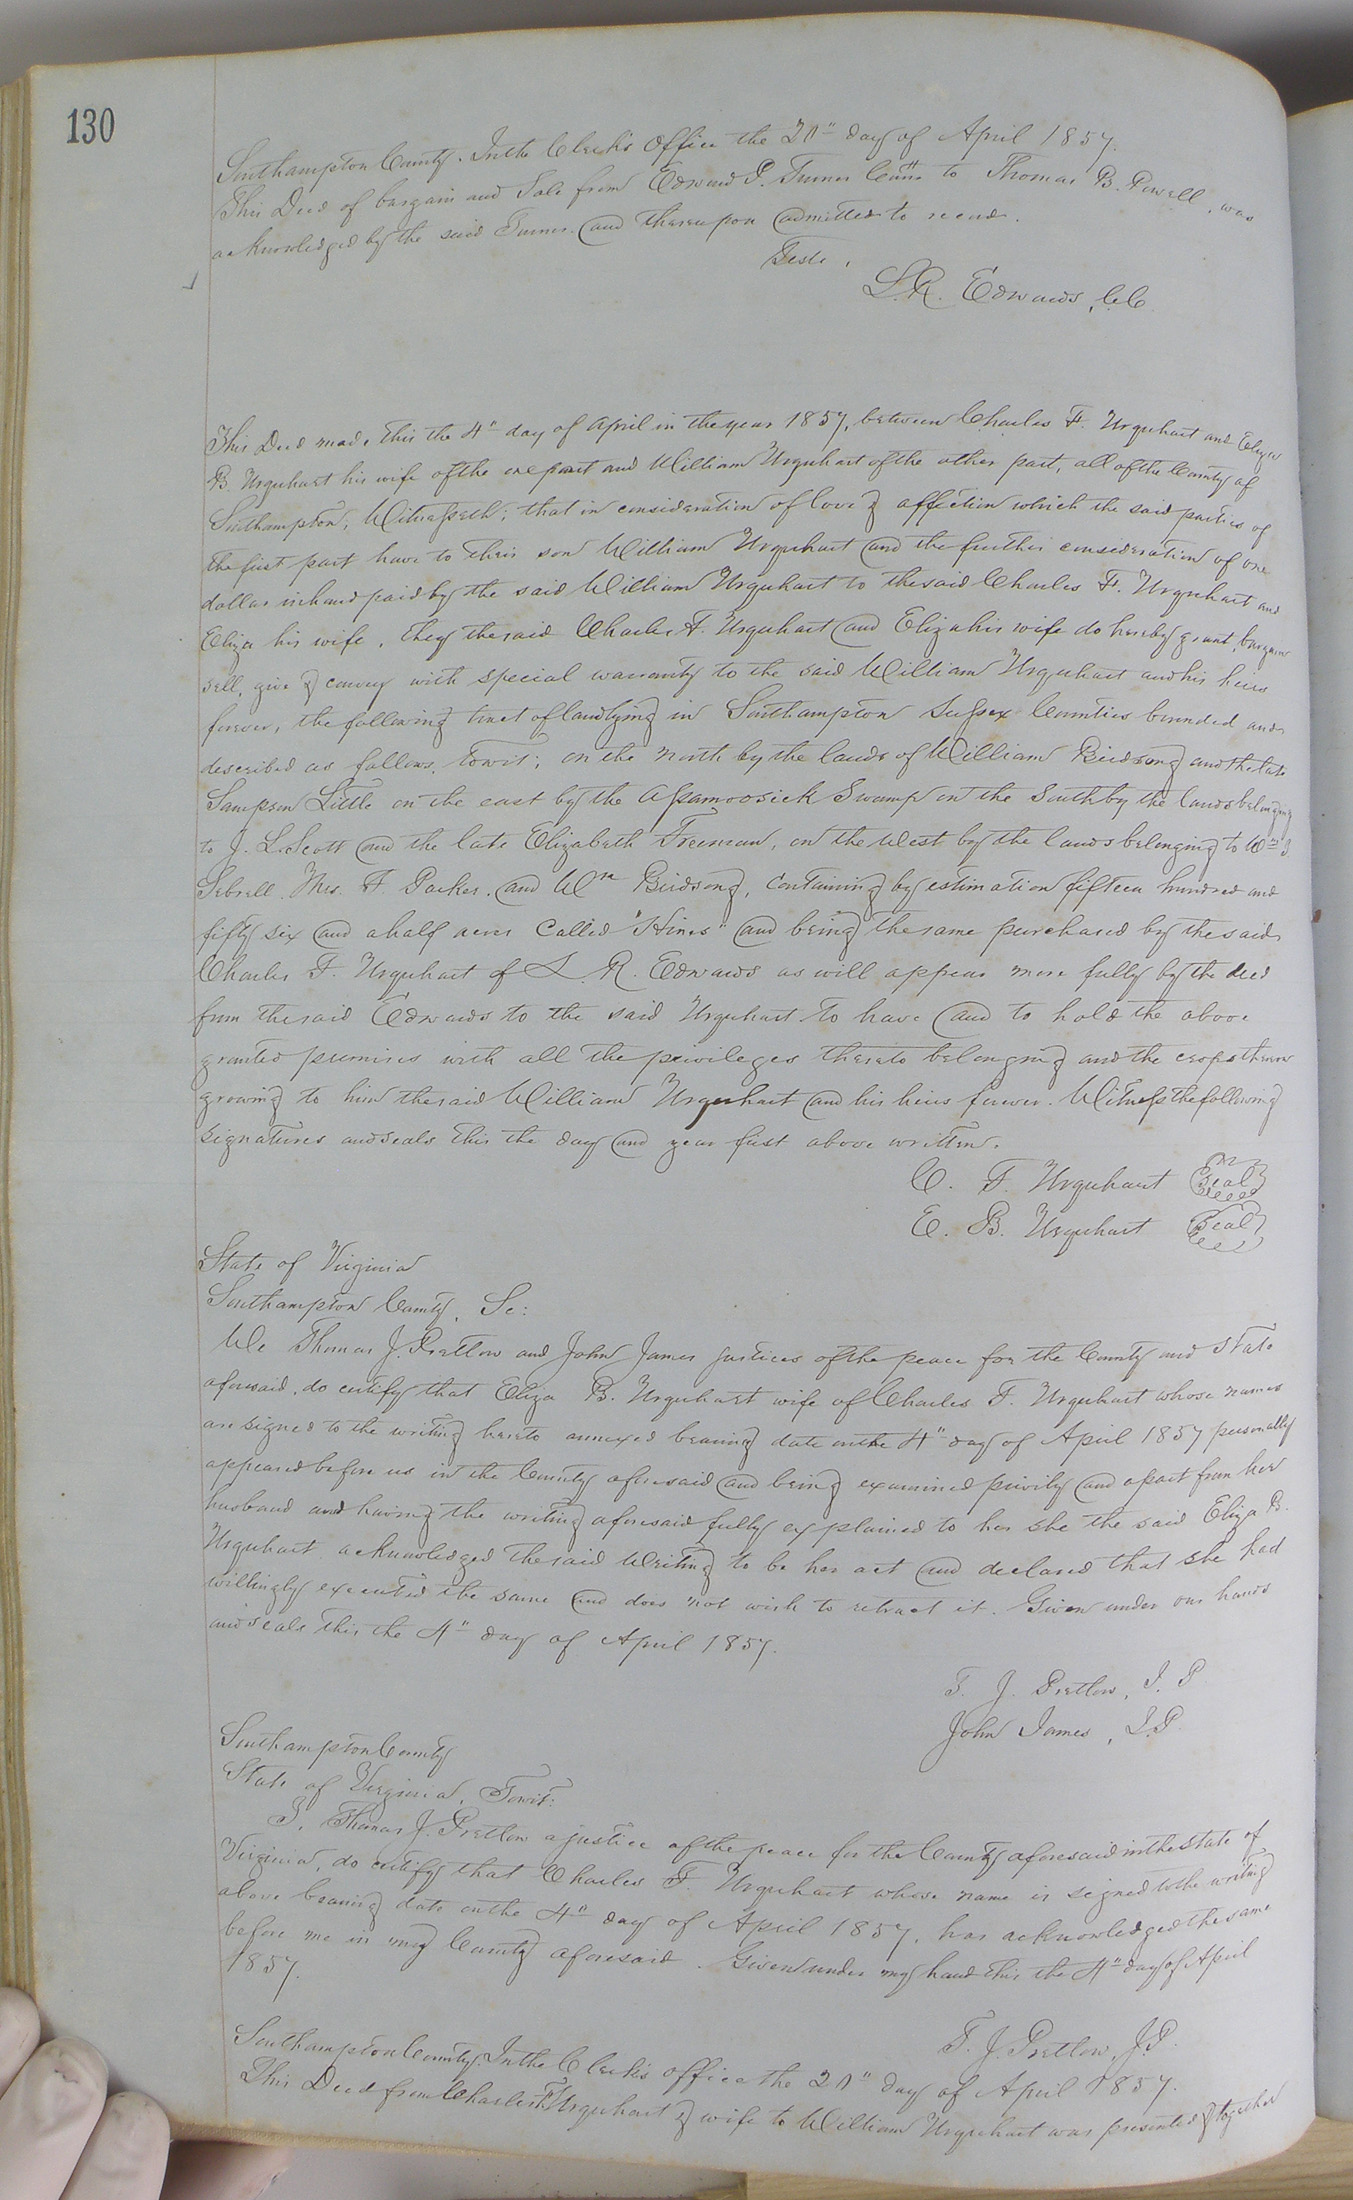 130
Southampton County. In the Clerk's Office the 20" day of April 1857.
This Deed of bargain and Sale from Edward P. Turner to Thomas B. Powell, was
acknowledged by the said Turner and thereupon admitted to record.
Teste,
L. R. Edwards, C.C.
This Deed made this the 4" day of April in the year 1857, between Charles F. Urquhart and Eliza
B. Urquhart his wife of the one part and William Urquhart of the other part, all of the County of
Southampton; Witnesseth; that in consideration of love & affection which the said parties of
the first part have to their son William Urquhart and the further consideration of one
dollar in hand paid by the said William Urquhart to the said Charles F. Urquhart and
Eliza his wife, they the said Charles F. Urquhart and Eliza his wife do hereby grant, bargain
sell, give & convey with special warranty to the said William Urquhart and his heirs
forever, the following tract of land lying in Southampton Sussex Counties bounded and
described as follows, towit; on the north by the lands of William Birdsong and the late
Sampson Little on the east by the Assamoosick Swamp on the South by the lands belonging
to J. L. Scott and the late Elizabeth Freeman, on the West by the lands belonging to Wm
Sebrell, Mrs. F. Parker, and Wm Birdsong, containing by estimation fifteen hundred and
fifty six and a half acres called "Hines" and being the same purchased by the said
Charles F. Urquhart of L. R. Edwards as will appear more fully by the deed
from the said Edwards to the said Urquhart to have and to hold the above
granted premises with all the privileges thereto belonging and the crops thereon
growing to him the said William Urquhart and his heirs forever. Witness the following
signatures and seals this the day and year first above written.
C. F. Urquhart Seal
E. B. Urquhart Seal
State of Virginia
Southampton County, Sc:
We Thomas J. Pretlow and John James justices of the peace for the County and State
aforesaid, do certify that Eliza B. Urquhart wife of Charles F. Urquhart whose names
are signed to the writing hereto annexed bearing date on the 4" day of April 1857 personally
appeared before us in the County aforesaid and being examined privily and apart from her
husband and having the writing aforesaid fully explained to her she the said Eliza B.
Urquhart acknowledged the said writing to be her act and declared that she had
willingly executed the same and does not wish to retract it. Given under our hands
and seals this the 4" day of April 1857.
T. J. Pretlow, J. P.
John James, J. P.
Southampton County
State of Virginia, Towit:
I, Thomas J. Pretlow a justice of the peace for the County aforesaid in the State of
Virginia, do certify that Charles F. Urquhart whose name is signed to the writing
above bearing date on the 4" day of April 1857, has acknowledged the same
before me in my County aforesaid. Given under my hand this the 4" day of April
1857.
T. J. Pretlow, J.P.
Southampton County. In the Clerk's office the 20" day of April 1857.
This Deed from Charles F. Urquhart & wife to William Urquhart was presented & together